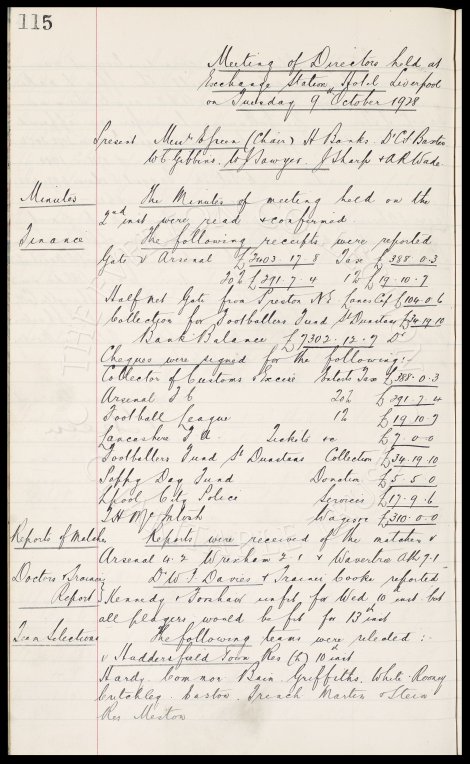 115
Meeting of Directors held at
Exchange Station Hotel Liverpool
on Tuesday 9th October 1928
Present Messrs E Green (Chair) H Banks. Dr C S Baxter
W C Gibbins. W J Sawyer. J Sharp & A R Wade.
Minutes The Minutes of meeting held on the
2nd inst were read & confirmed.
Finance The following receipts were reported
Gate v Arsenal £3403.17.8 Tax £388.0.3
20% £291.7.4 1% £19.10.7
Half net Gate from Preston N E Lancs Cup £104.0.6
Collection for Footballers Fund St Dunstans £34.19.10
Bank Balance £7302.12.7 Dr
Cheques were signed for the following:-
Collector of Customs & Excise Entertts Tax £388.0.3
Arsenal F C 20% £291.7.4
Football League 1% £19.10.7
Lancashire F A. Tickets &c £7.0.0
Footballers Fund St Dunstans Collection £34.19.10
Poppy Day Fund Donation £5.5.0
Lpool City Police Services £17.9.6
T H McIntosh Wages &c £310.0.0
Reports of Matches Reports were received of the matches v
Arsenal 4.2 Wrexham 2.1 & Wavertree Ath 7.1
Doctors & Trainers Dr W J Davies & Trainer Cooke reported
Report Kennedy & Forshaw unfit for Wed 10th inst but
all players would be fit for 13th inst
Team Selections The following teams were selected :-
v Huddersfield Town Res (h) 10th inst
Hardy. Common Bain. Griffiths. White. Rooney
Critchley. Easton. French Martin & Stein
Res Meston